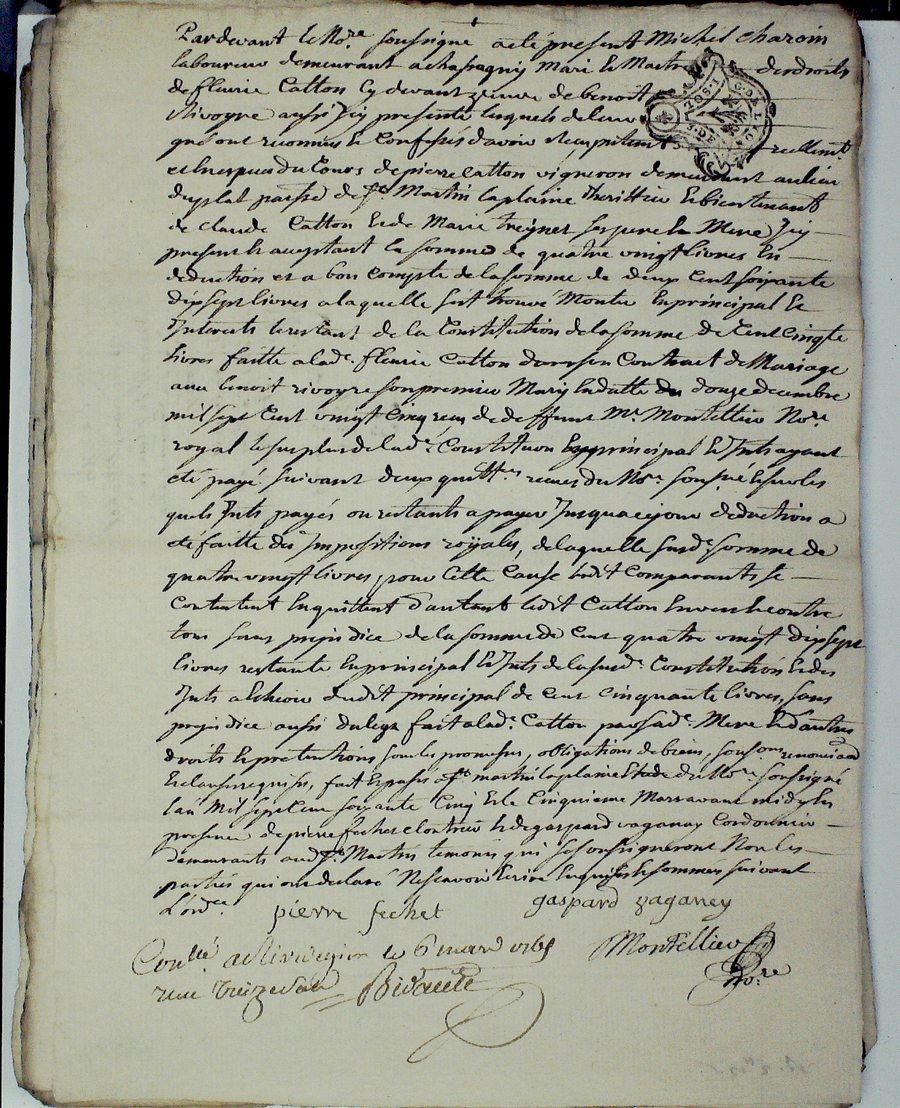 Pardevant le No.re soussigné a été présent Michel Charoin
laboureur demeurant a chassagny mari et Maitre des droits
de fleurie Catton cy devant veuve de benoit
Rivoyre aussi icy presente lesquels de leur
gré ont reconnus et Confessés d'avoir reellem.t
et en espèces du Cours de pierre Catton vigneron demeurant au lieu
du plat parsse de S.t Martin laplaine heritier et bientenant
de Claude Catton et de Marie ses pere et Mere icy
present et acceptant la somme de quatre vingt livres En
deduction et a bon Compte de la somme de deux Cent soixante
dix sept livres a laquelle s'est trouvé Monter En principal et
Interests le restant de la Constitution de la somme de Cent Cinq.te
livres faitte a lad.e fleurie Catton dans son Contract de Mariage
avec benoit rivoyre son premier Mary En datte du douze decembre
mil sept Cent vingt Cinq recu de deffunt M.e Montellier No.re
royal le surplus de lad.e Constitu.on En principal et Ints ayant
eté payé suivant deux quitt.es recues du No.re soussigné Esur les
quels Ints payés ou restants a payer Jusqua ce jour deduction a
été faitte des Impositions royales, de laquelle susd.e somme de
quatre vingt livres, pour Cette Cause lesdit Comparants se
Contentent En quittent d'autant ledit Catton Envers et contre
tous sans prejudice de la somme de Cent quatre vingt dix sept
livres restante En principal et Ints de la susd.e Constitution et des
Ints a Echeoir dudit principal de Cent Cinquante livres, sans
prejudice aussi du legs fait a lad.e Catton par sad.e Mere et d'autres
droits et pretentions sous les promesses, obligations de biens, renonciaon
Et clauses requises, fait et passé a S.t martin la plaine Etude du No.re soussigné
l'an Mil sept Cent soixante Cinq Et le Cinquieme Mars avant midy En
presence de pierre fechet et de gaspard vaganay Cordonnier
demeurants aud. S.t Martin temoins qui se soussigneront Non les
parties qui ont declaré Ne scavoir Ecrire Enquises et sommées suivant
L'ord.ce pierre fechet gaspard vaganey
Con.llé a Rivedegier le 6 mars 1765 Montellier
recu treize sols No.re